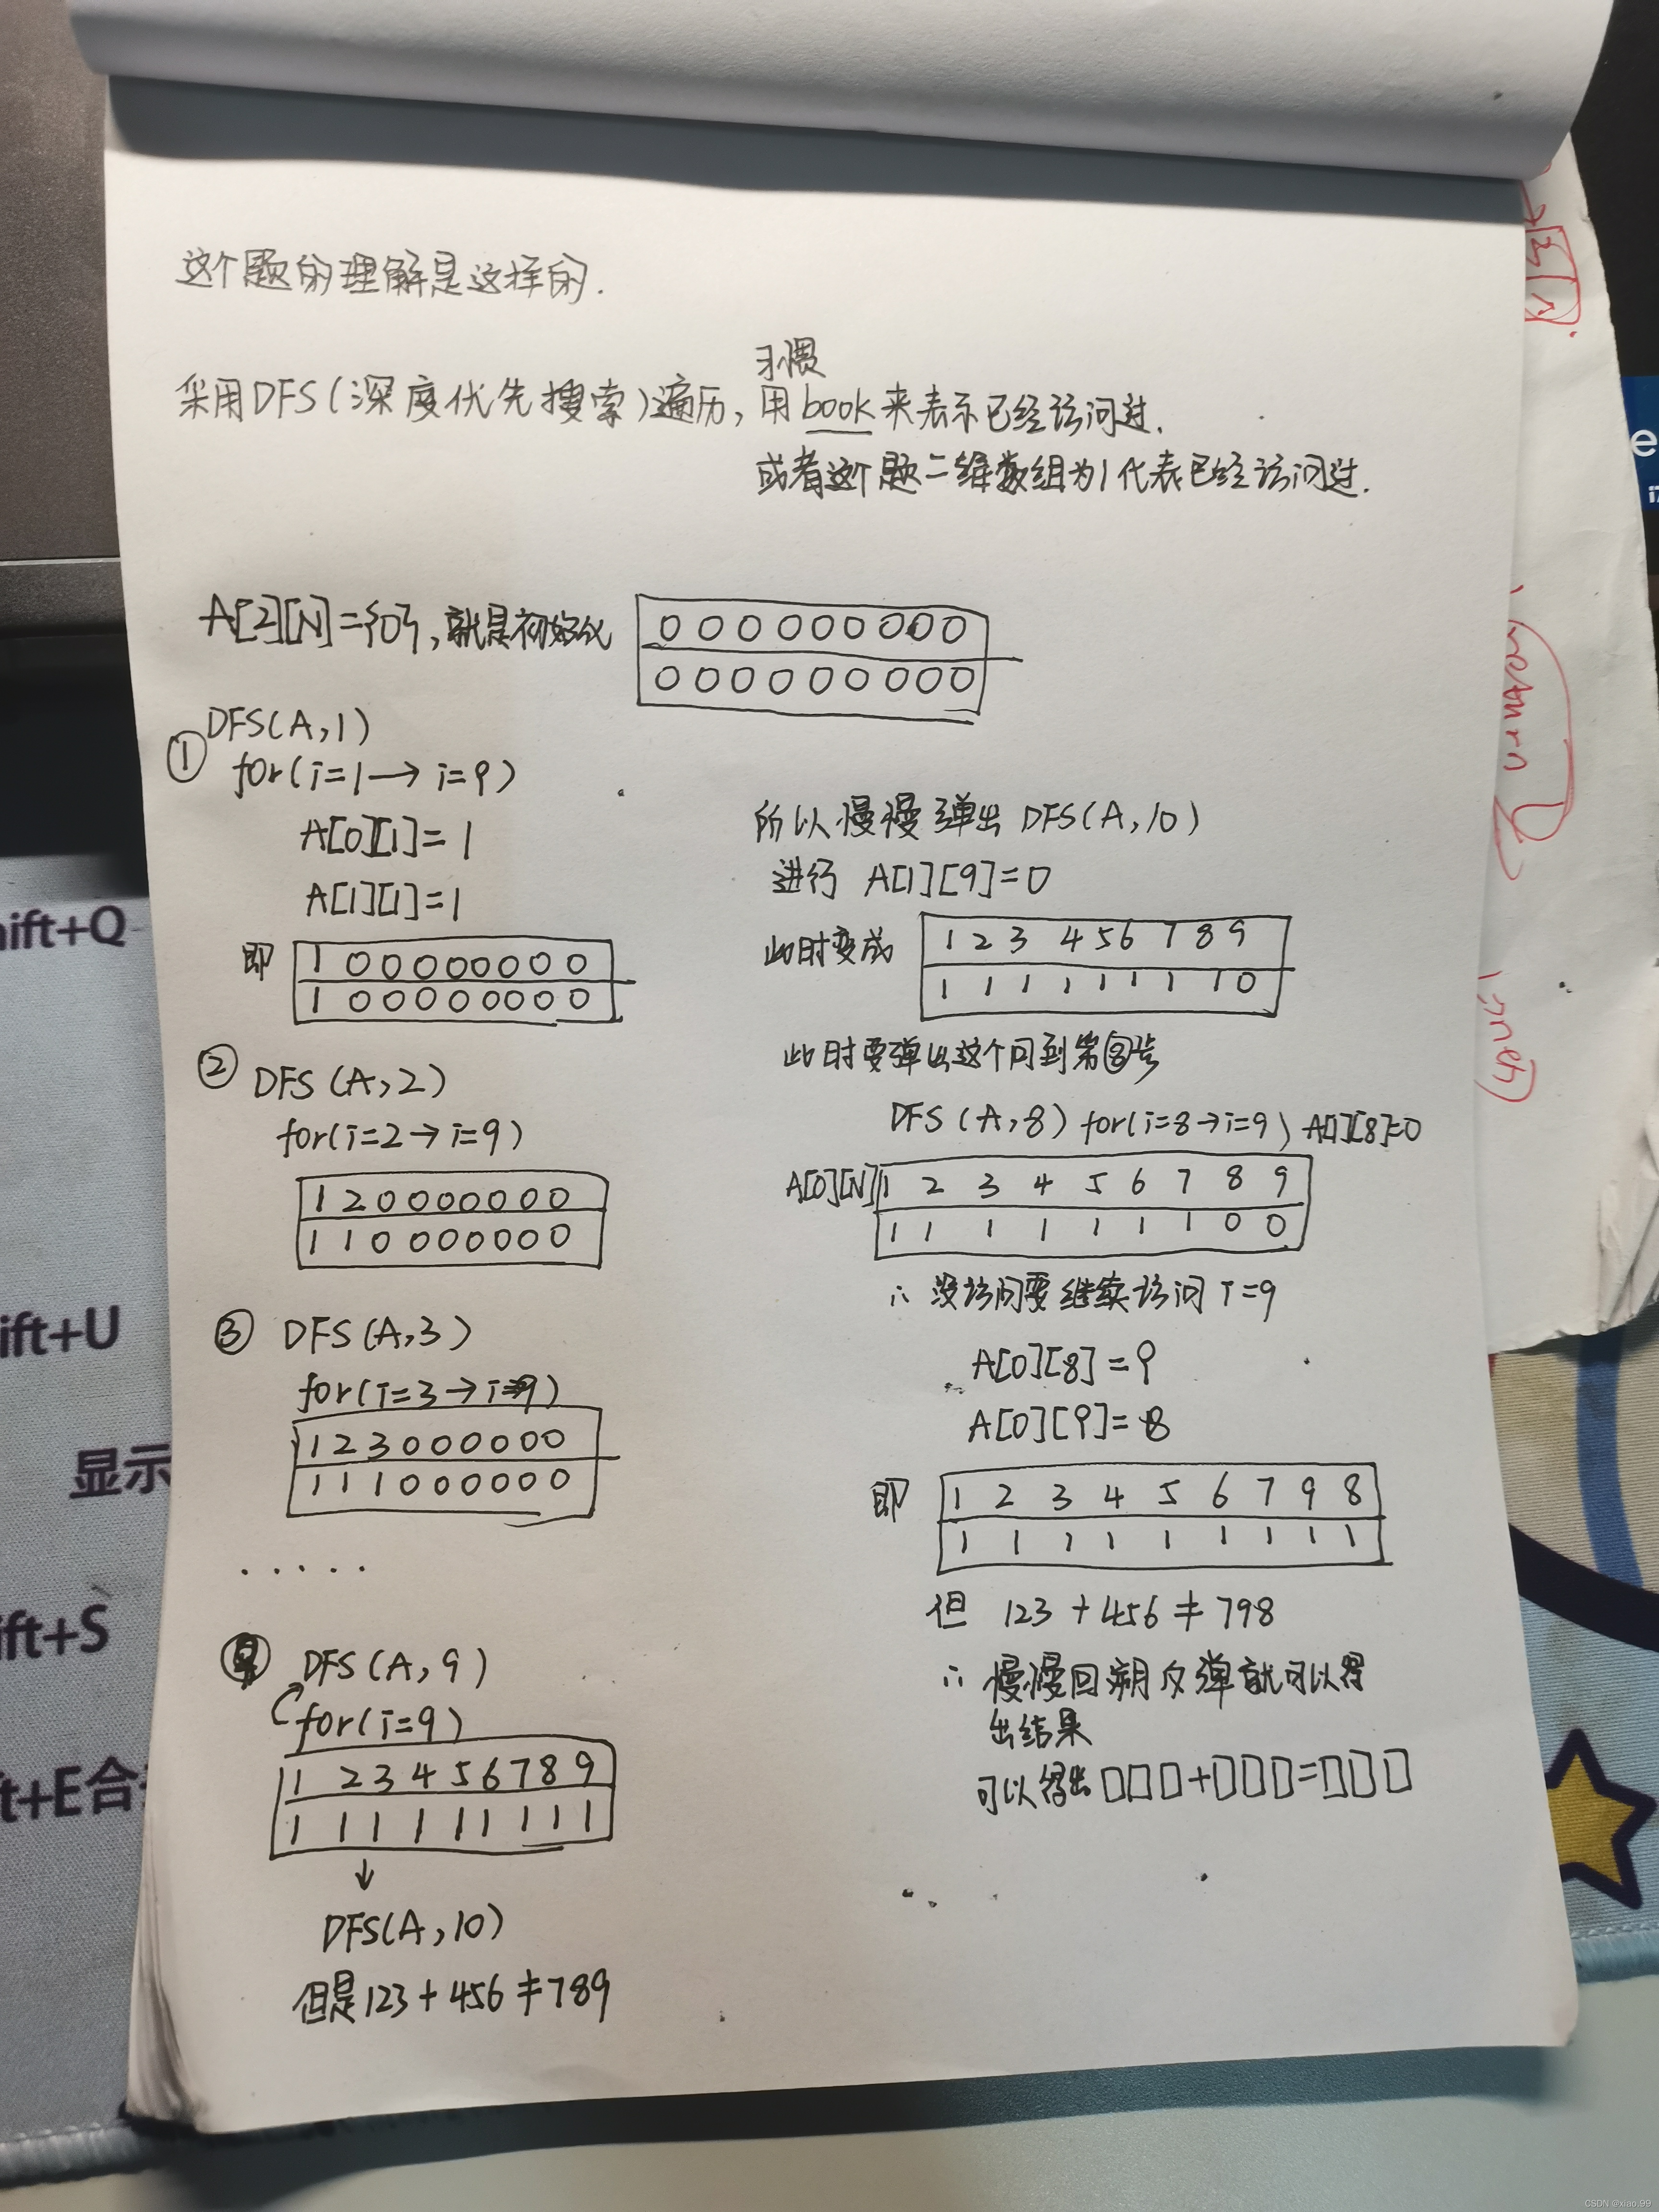 这个题的理解是这样的.
习惯
采用DFS(深度优先搜索)遍历,用book来表示已经访问过.
或者这个题二维数组为1代表已经访问过.
A[2][N]={0},就是初始化
0 0 0 0 0 0 0 0 0
0 0 0 0 0 0 0 0 0
① DFS(A,1)
for(i=1→i=9)
A[0][1]=1
A[1][1]=1
即
1 0 0 0 0 0 0 0 0
1 0 0 0 0 0 0 0 0
② DFS(A,2)
for(i=2→i=9)
1 2 0 0 0 0 0 0 0
1 1 0 0 0 0 0 0 0
③ DFS(A,3)
for(i=3→i=9)
1 2 3 0 0 0 0 0 0
1 1 1 0 0 0 0 0 0
.....
DFS(A,9)
for(i=9)
1 2 3 4 5 6 7 8 9
1 1 1 1 1 1 1 1 1
↓
DFS(A,10)
但是123+456≠789
所以慢慢弹出 DFS(A,10)
进行 A[1][9]=0
此时变成
1 2 3 4 5 6 7 8 9
1 1 1 1 1 1 1 1 0
此时要弹出这个回到第⑧步
DFS(A,8) for(i=8→i=9) A[1][8]=0
A[0][N] 1 2 3 4 5 6 7 8 9
1 1 1 1 1 1 1 0 0
∴ 没访问要继续访问 i=9
A[0][8]=9
A[0][9]=8
即
1 2 3 4 5 6 7 9 8
1 1 1 1 1 1 1 1 1
但 123+456≠798
∴ 慢慢回溯反弹就可以得
出结果
可以得出□□□+□□□=□□□
return
ift+Q
ift+U
显示
ift+S
ft+E合
e
i7
CSDN @xiao.99